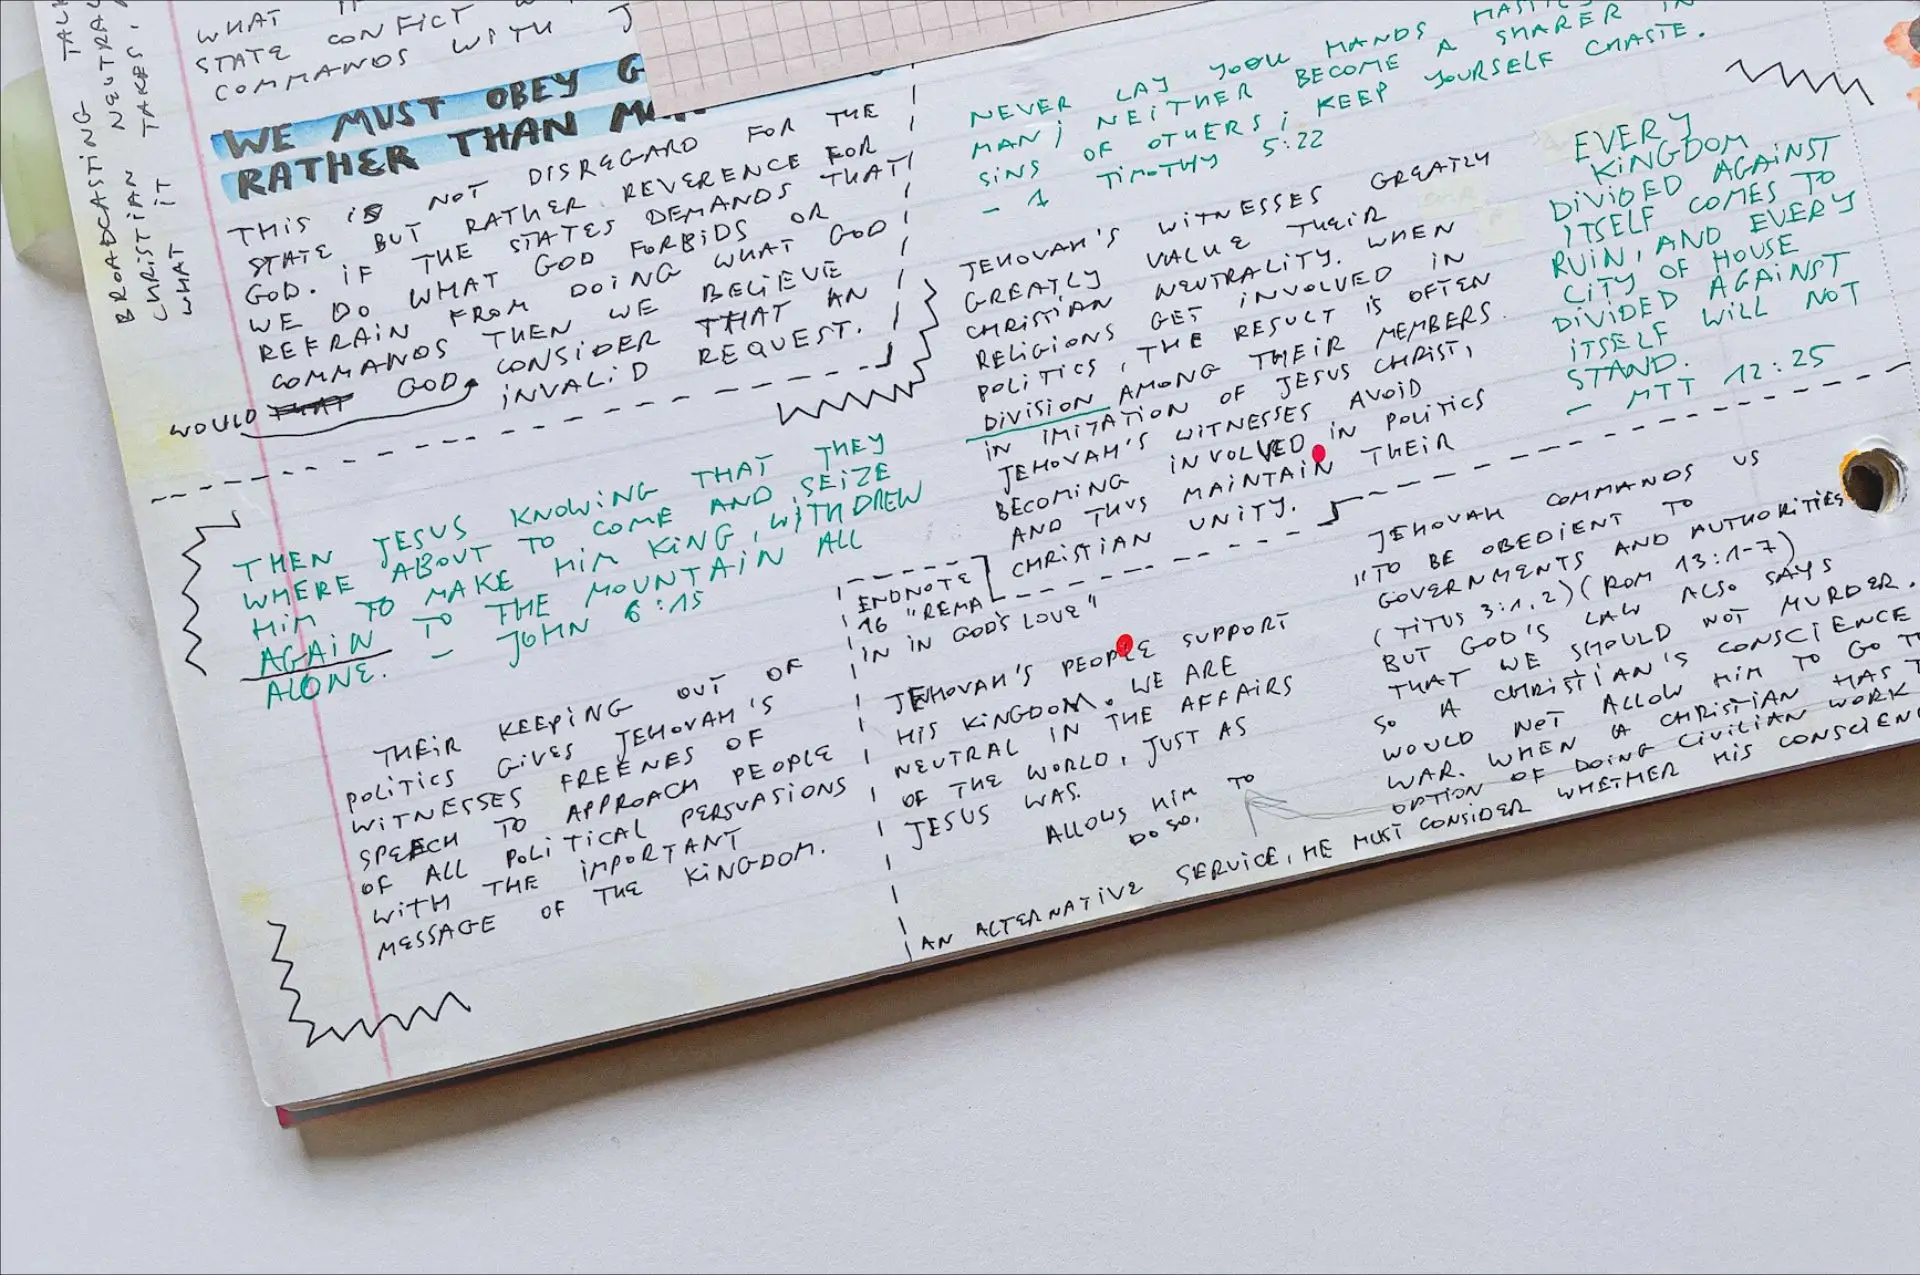 BROADCASTING TALK
CHRISTIAN NEUTRA
WHAT IT TAKES.
WHAT
STATE CONFICT
COMMANDS WITH J
WE MUST OBEY G
RATHER THAN
THIS IS NOT DISREGARD FOR THE
STATE BUT RATHER REVERENCE FOR
GOD. IF THE STATES DEMANDS THAT
WE DO WHAT GOD FORBIDS OR
REFRAIN FROM DOING WHAT GOD
COMMANDS THEN WE BELIEVE
GOD CONSIDER THAT AN
WOULD THAT
INVALID REQUEST.
THEN JESUS KNOWING THAT THEY
WHERE ABOUT TO COME AND SEIZE
HIM TO MAKE HIM KING, WITHDREW
AGAIN TO THE MOUNTAIN ALL
ALONE. - JOHN 6:15
THEIR KEEPING OUT OF
POLITICS GIVES JEHOVAH'S
WITNESSES FREENES OF
SPEECH TO APPROACH PEOPLE
OF ALL POLITICAL PERSUASIONS
WITH THE IMPORTANT
MESSAGE OF THE KINGDOM.
NEVER LAY YOUR HANDS
MAN; NEITHER BECOME A SHARER IN
SINS OF OTHERS; KEEP YOURSELF CHASTE.
- 1 TIMOTHY 5:22
JEHOVAH'S WITNESSES GREATLY
GREATLY VALUE THEIR
CHRISTIAN NEUTRALITY. WHEN
RELIGIONS GET INVOLVED IN
POLITICS, THE RESULT IS OFTEN
DIVISION AMONG THEIR MEMBERS.
IN IMITATION OF JESUS CHRIST,
JEHOVAH'S WITNESSES AVOID
BECOMING INVOLVED IN POLITICS
AND THUS MAINTAIN THEIR
CHRISTIAN UNITY.
ENDNOTE
16 "REMA
IN IN GOD'S LOVE"
JEHOVAH'S PEOPLE SUPPORT
HIS KINGDOM. WE ARE
NEUTRAL IN THE AFFAIRS
OF THE WORLD, JUST AS
JESUS WAS.
EVERY
KINGDOM
DIVIDED AGAINST
ITSELF COMES TO
RUIN, AND EVERY
CITY OF HOUSE
DIVIDED AGAINST
ITSELF WILL NOT
STAND.
- MTT 12:25
JEHOVAH COMMANDS US
"TO BE OBEDIENT TO
GOVERNMENTS AND AUTHORITIES
(TITUS 3:1,2) (ROM 13:1-7)
BUT GOD'S LAW ALSO SAYS
THAT WE SHOULD NOT MURDER.
SO A CHRISTIAN'S CONSCIENCE
WOULD NOT ALLOW HIM TO GO T
WAR. WHEN A CHRISTIAN HAS T
OPTION OF DOING CIVILIAN WORK
AN ALTERNATIVE SERVICE, HE MUST CONSIDER WHETHER HIS CONSCIEN
ALLOWS HIM TO
DO SO.